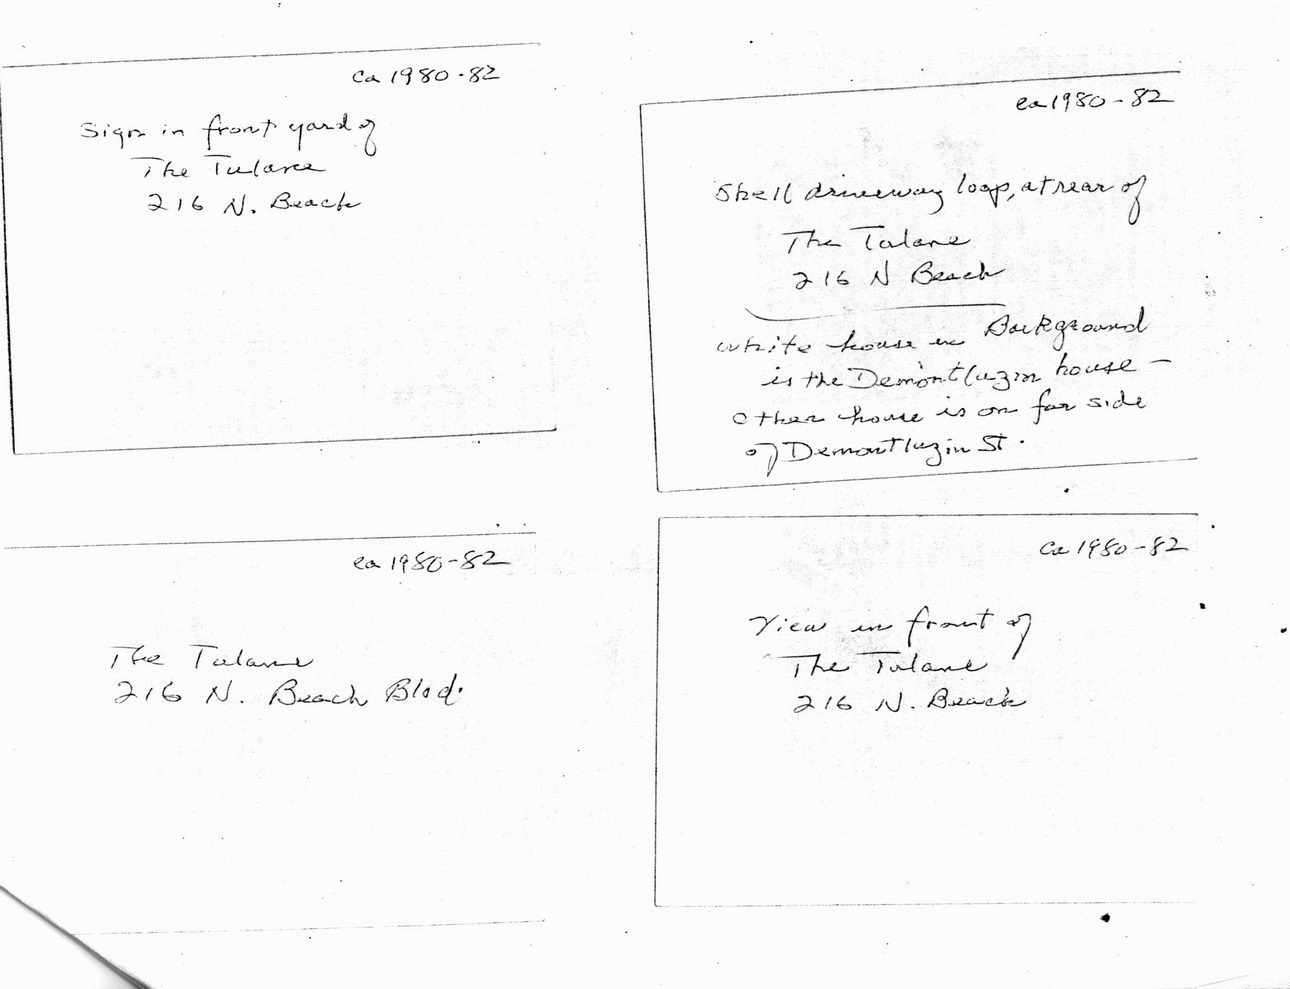 ca 1980-82
Sign in front yard of
The Tulane
216 N. Beach
ca 1980-82
Shell driveway loop, at rear of
The Tulane
216 N Beach
white house in Background
is the Demontluzin house -
other house is on far side
of Demontluzin St.
ca 1980-82
The Tulane
216 N. Beach Blvd.
ca 1980-82
View in front of
The Tulane
216 N. Beach